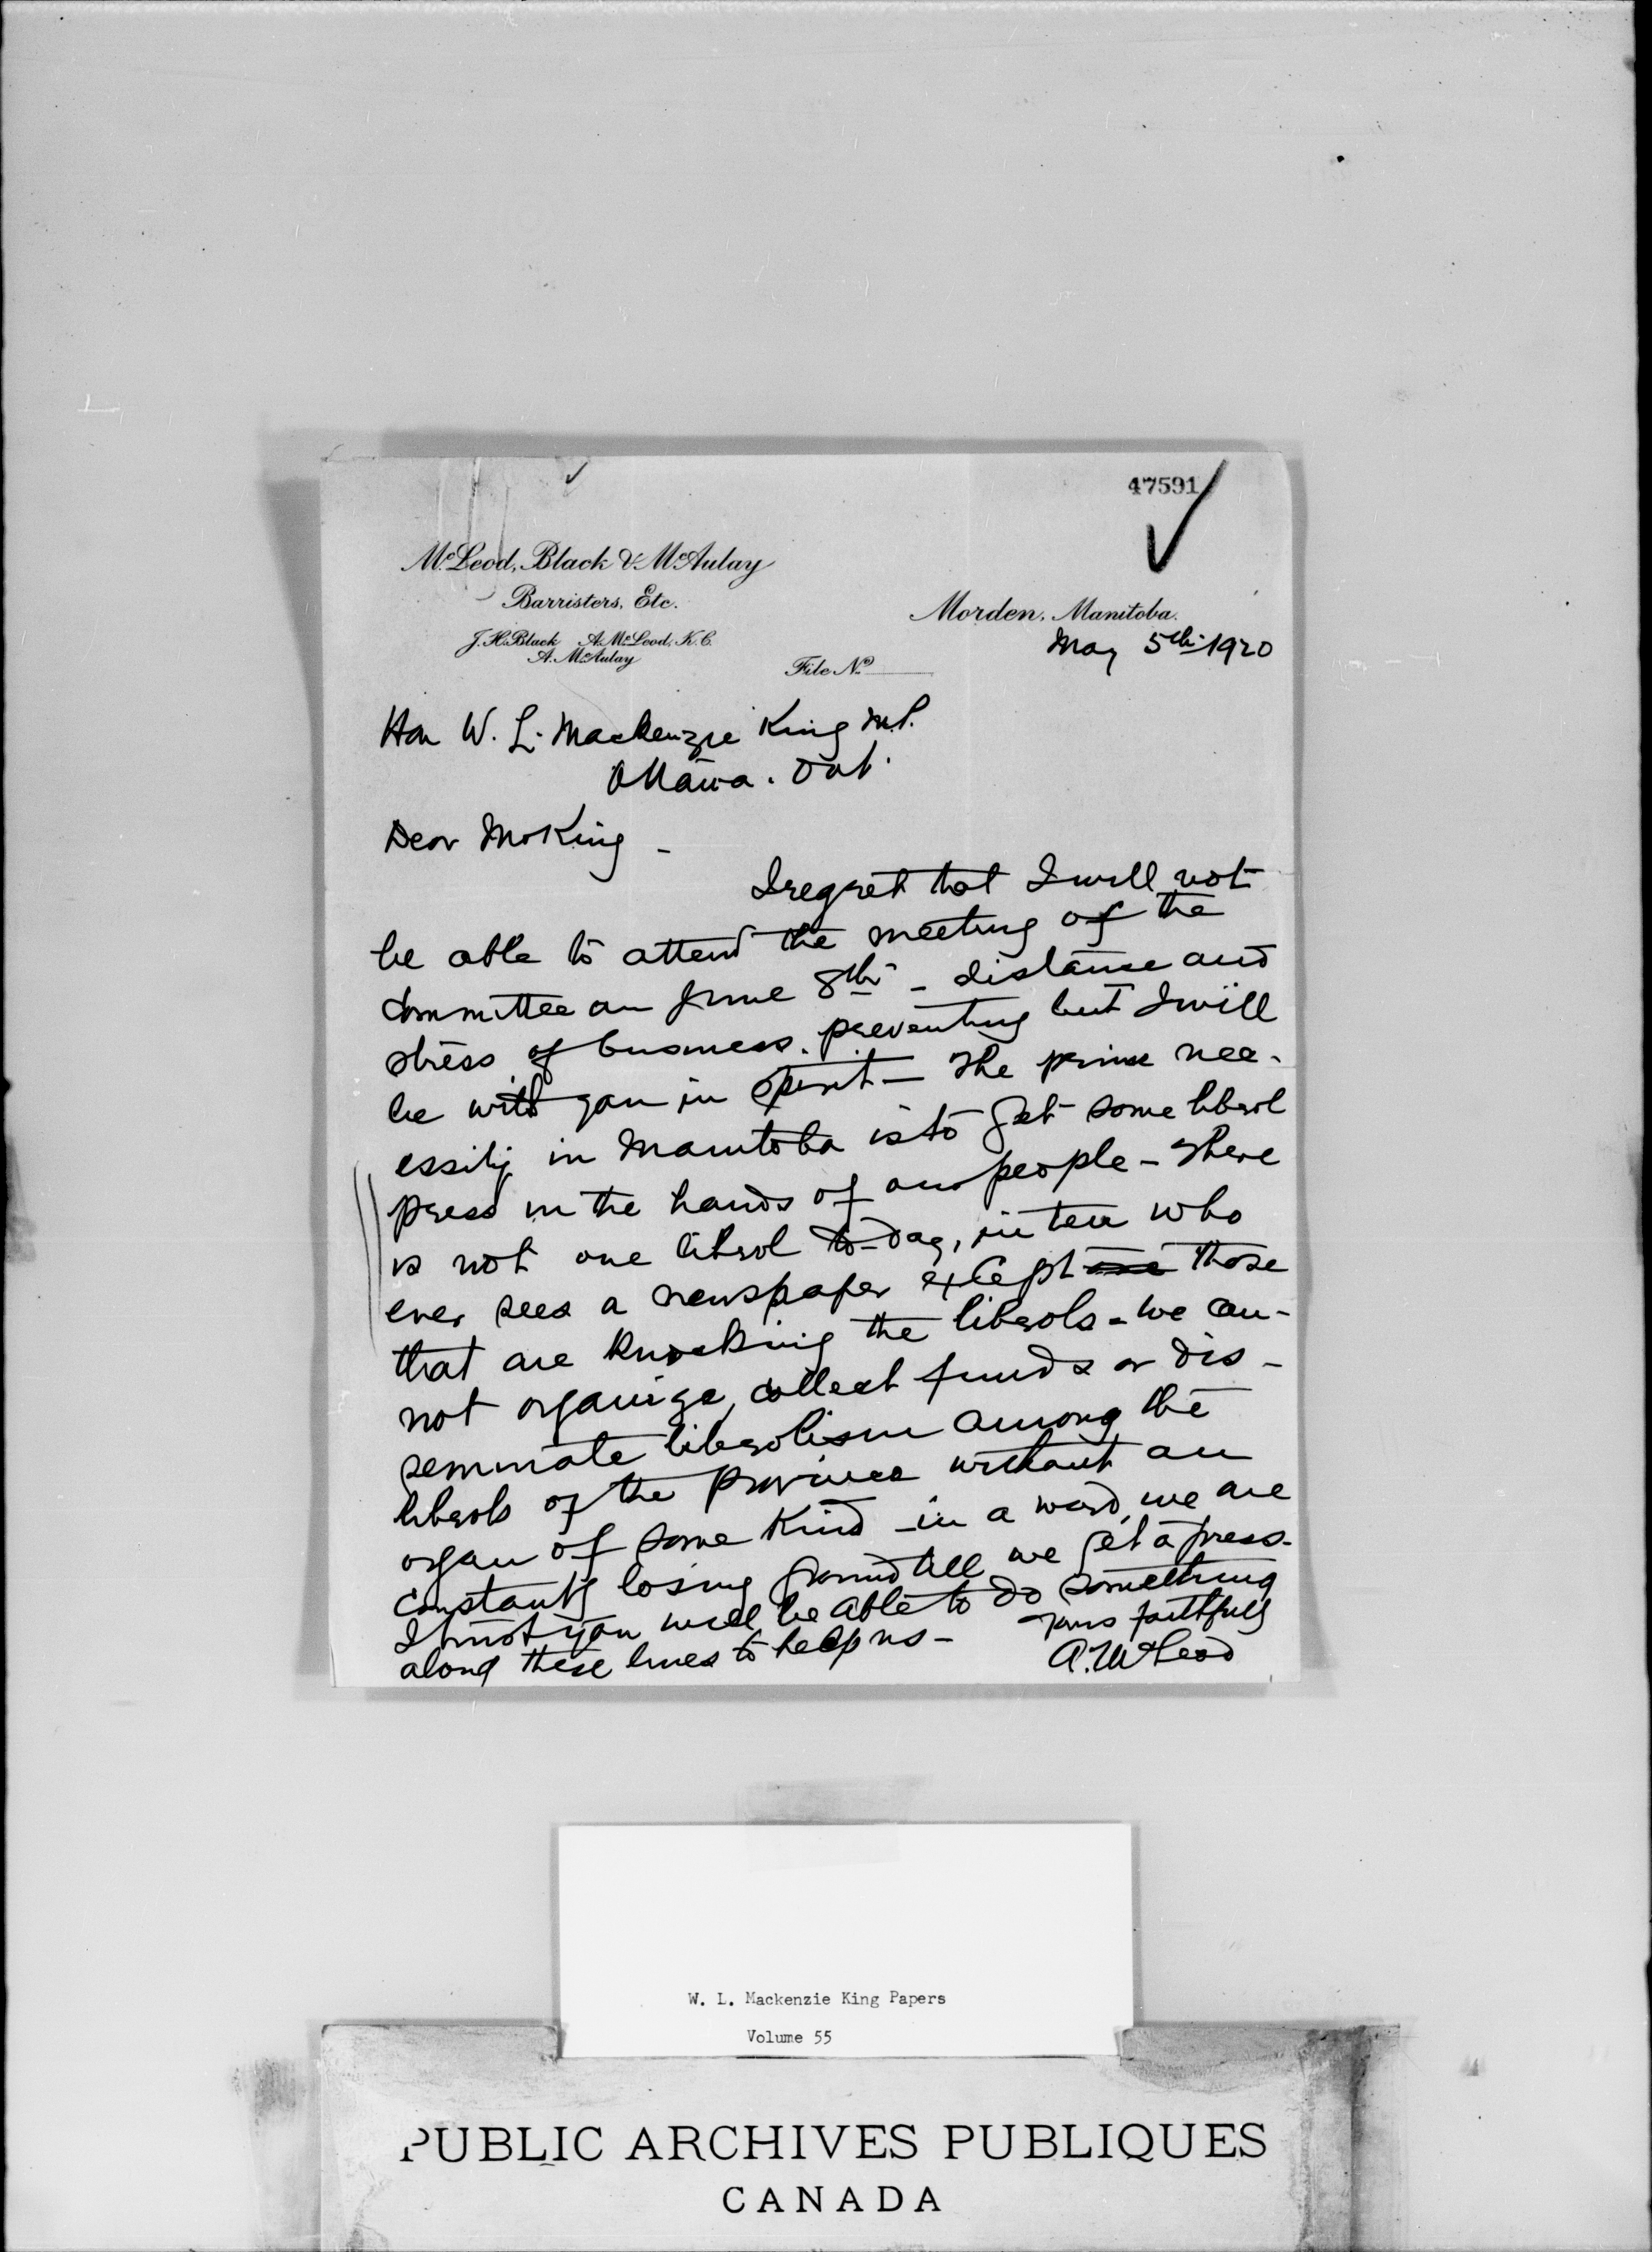 47591
McLeod, Black & McAulay
Barristers, Etc.
J.H. Black A. McLeod, K.C.
A. McAulay
Morden, Manitoba.
May 5th 1920
File No
Hon W. L. Mackenzie King M.P.
Ottawa. Ont.
Dear Mr King -
I regret that I will not
be able to attend the meeting of the
Committee on June 8th - distance and
stress of business. preventing but I will
be with you in spirit — The prime nec-
essity in Manitoba is to get some liberal
press in the hands of our people - There
is not one liberal to-day, in ten who
ever sees a newspaper except those
that are knocking the liberals - We can-
not organize, collect funds or dis-
seminate liberalism among the
liberals of the Province without an
organ of some kind - in a word, we are
constantly losing ground till we get a press.
I trust you will be able to do something
along these lines to help us -
Yours faithfully
A. McLeod
W. L. Mackenzie King Papers
Volume 55
PUBLIC ARCHIVES PUBLIQUES
CANADA